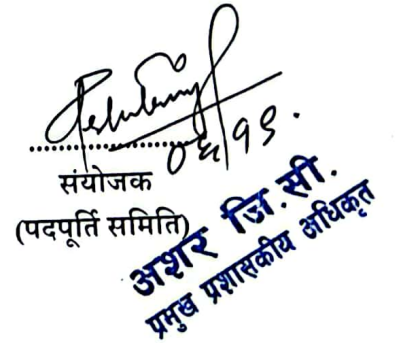 ०६/१९.
संयोजक
(पदपूर्ति समिति)
अशर जि.सी.
प्रमुख प्रशासकीय अधिकृत